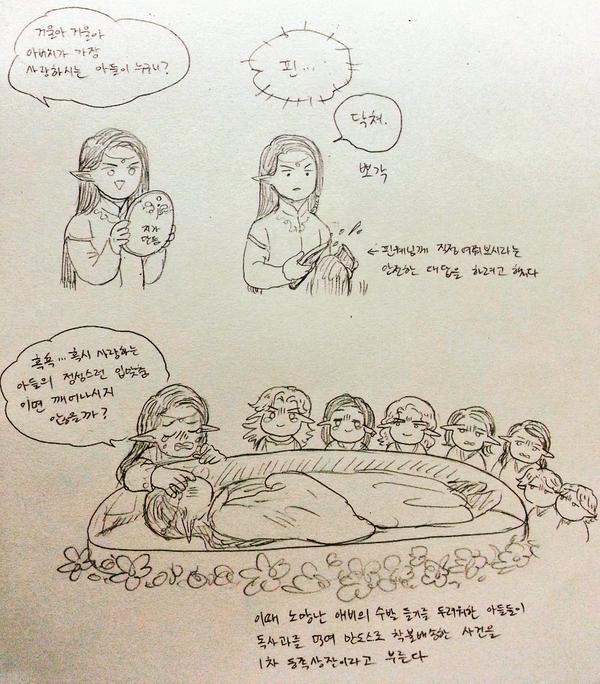 거울아 거울아
아버지가 가장
사랑하시는 아들이 누구니?
핀...
닥쳐.
뽀각
지가
만듦
← 핀웨님께 직접 여쭤보시라는
안전한 대답을 하려고 했다
흑흑...혹시 사랑하는
아들의 정성스런 입맞춤
이면 깨어나시지
않을까?
이때 노망난 애비의 수발 들기를 두려워한 아들들이
독사과를 먹여 만도스로 착불배송한 사건을
1차 동족상잔이라고 부른다